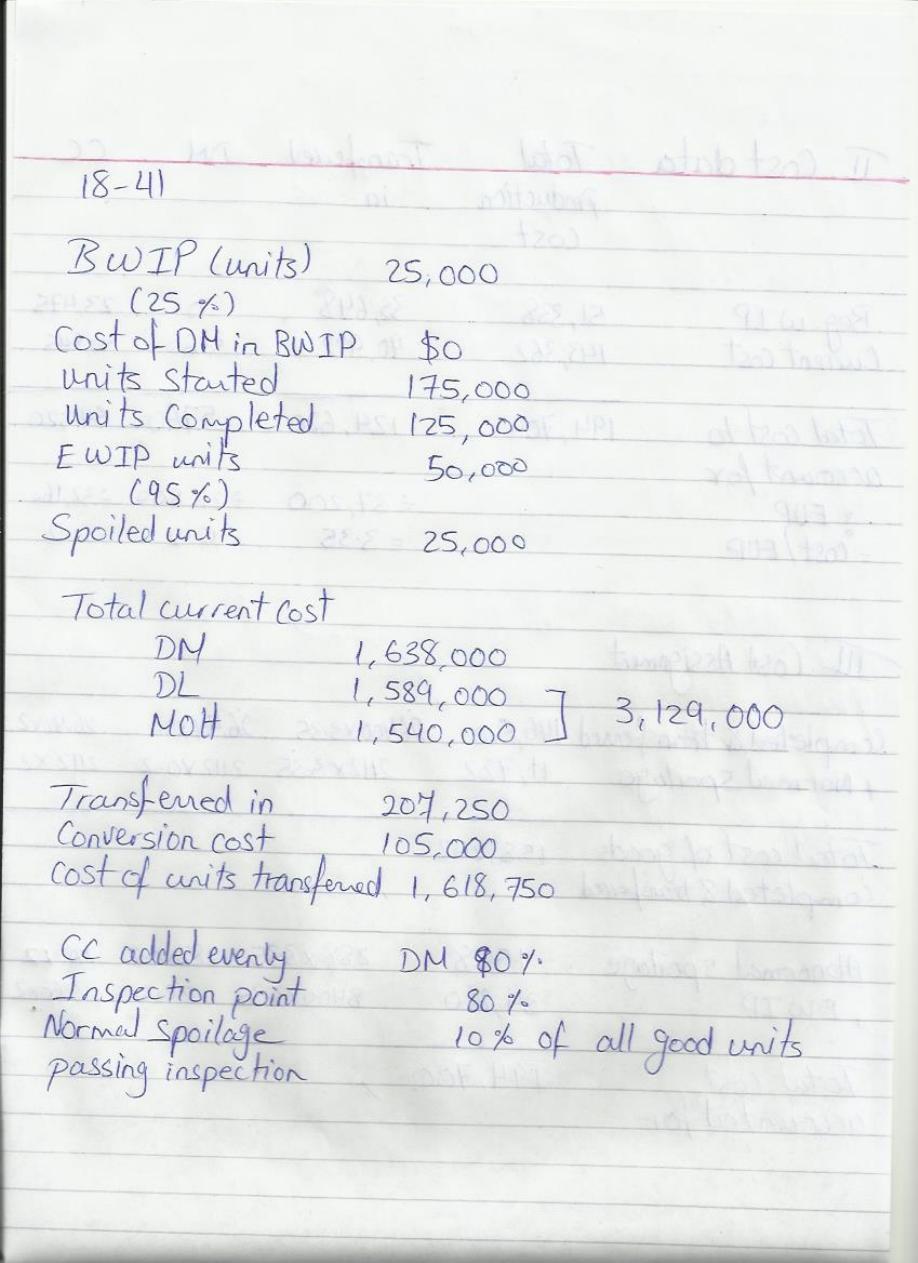 18-41
BWIP (units) 25,000
(25%)
Cost of DM in BWIP $0
units Started 175,000
units Completed 125,000
EWIP units 50,000
(95%)
Spoiled units 25,000
Total current cost
DM 1,638,000
DL 1,589,000
MOH 1,540,000 ] 3,129,000
Transferred in 207,250
Conversion cost 105,000
Cost of units transferred 1,618,750
CC added evenly DM 80%
Inspection point 80%
Normal Spoilage 10% of all good units
passing inspection